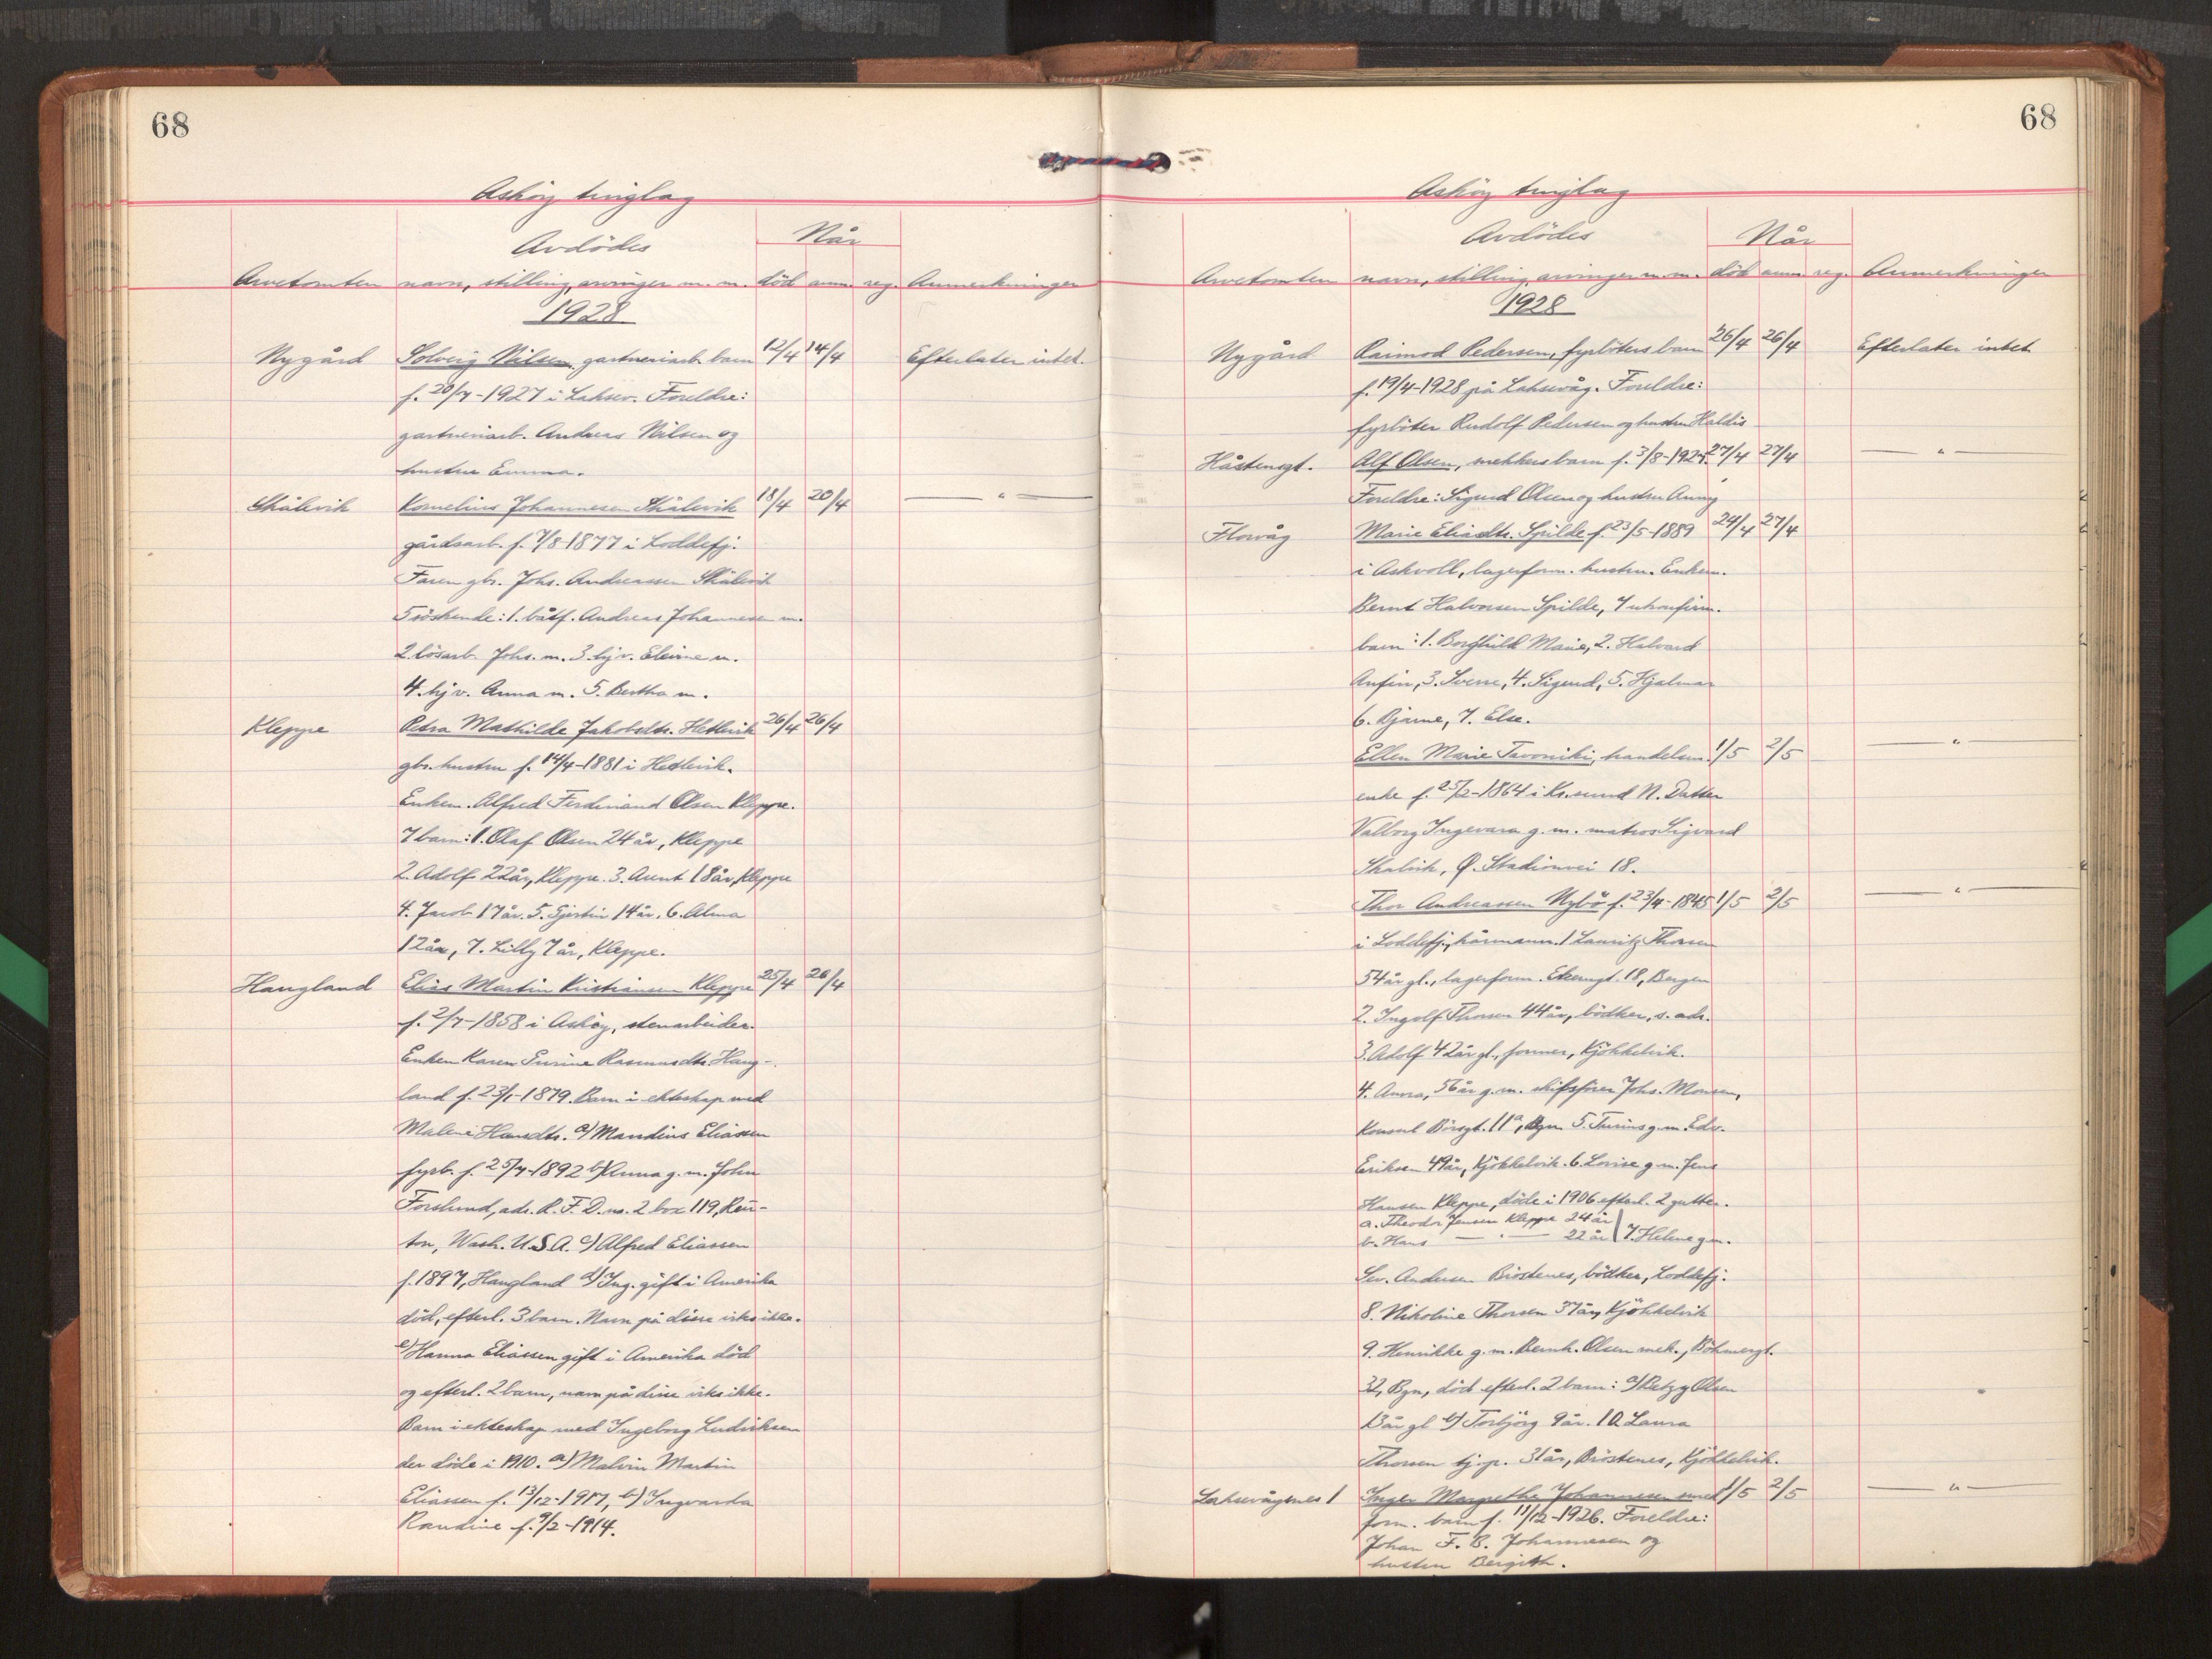 68
Asköy tinglag
Avdödes
Når
Arvetomten navn, stilling, arvinger m. m. död anm. reg. Anmerkninger
1928
Nygård Solveig Nilsen gartneriarb. barn 12/4 14/4 Efterlater intet.
f. 20/7-1927 i Laksev. Foreldre:
gartneriarb. Andreas Nilsen og
hustru Emma.
Skålevik Kornelius Johannesen Skålevik 18/4 20/4 — " —
gårdsarb. f. 7/8-1877 i Loddefj.
Faren gbr. Johs. Andreassen Skålevik
5 söskende: 1. båtf. Andreas Johannesen m.
2. lösarb. Johs. m. 3. hjv. Elevine m.
4. hjv. Anna m. 5. Bertha m.
Kleppe Petra Mathilde Jakobsdtr. Hetlevik 26/4 26/4
gbr. hustru f. 14/4-1881 i Hetlevik.
Enkem. Alfred Ferdinand Olsen Kleppe.
7 barn: 1. Olaf Olsen 24 år, Kleppe
2. Adolf 22 år, Kleppe. 3. Arent 18 år, Kleppe
4. Jacob 17 år. 5. Gjertin 14 år. 6. Alma
12 år, 7. Lilly 7 år, Kleppe.
Haugland Elias Martin Kristiansen Kleppe 25/4 26/4
f. 2/7-1858 i Asköy, stenarbeider.
Enken Karen Surine Rasmusdtr. Haug-
land f. 23/1-1879. Barn i ekteskap med
Malene Hansdtr. a) Mandius Eliassen
fyrb. f. 25/7-1892 b) Anna g. m. John
Forslund, adr. R. F. D. no. 2 box 119, Ren-
ton, Wash. U.S.A. c) Alfred Eliassen
f. 1897, Haugland d) Ing. gift i Amerika
död, efterl. 3 barn. Navn på disse vites ikke.
e) Hanna Eliassen gift i Amerika död
og efterl. 2 barn, navn på disse vites ikke.
Barn i ekteskap med Ingeborg Ludviksen
der döde i 1910. a) Malvin Martin
Eliassen f. 13/12-1917, b) Ingvarda
Randine f. 9/2-1914.
68
Asköy tinglag
Avdödes
Når
Arvetomten navn, stilling, arvinger m. m. död anm. reg. Anmerkninger
1928
Nygård Raimod Pedersen, fyrböters barn 26/4 26/4 Efterlater intet
f. 19/4-1928 på Laksevåg. Foreldre:
fyrböter Rudolf Pedersen og hustru Haldis
Håstensgt. Alf Olsen, snekkers barn f. 3/8-1927. 27/4 27/4 — " —
Foreldre: Sigurd Olsen og hustru Anny
Florvåg Marie Eliasdtr. Spilde f. 23/5-1889 24/4 27/4
i Askvoll, lagerform. hustru. Enkem.
Bernt Halvorsen Spilde, 7 ukonfirm.
barn: 1. Borghild Marie, 2. Halvard
Anfin, 3. Sverre, 4. Sigurd, 5. Hjalmar
6. Bjarne, 7. Else.
Ellen Marie Tavoniki, handelsm. 1/5 2/5 — " —
enke f. 25/2-1864 i Kr.sund N. Datter
Valborg Ingevara g. m. matros Sigvard
Skalvik, Ø. Stadionvei 18.
Thor Andreassen Nybö f. 23/4-1845 1/5 2/5 — " —
i Loddefj., kårmann. 1 Lauritz Thorsen
54 år gl., lagerform. Ekrengt. 18, Bergen
2. Ingolf Thorsen 44 år, bödker, s. adr.
3. Adolf 42 år gl., former, Kjökkelvik.
4. Anna, 56 år g. m. skibsförer Johs. Monsen,
Konsul Börsgt. 11a, Bgn 5. Turina g. m. Edv.
Eriksen 49 år, Kjökkelvik. 6. Lovise g. m. Jens
Hansen Kleppe, döde i 1906 efterl. 2 gutter.
a. Theodor Jensen Kleppe 24 år
b. Hans — " — 22 år 7. Helene g. m.
Sev. Andersen Bröstenes, bödker, Loddefj.
8. Nikoline Thorsen 37 år, Kjökkelvik
9. Henrikke g. m. Bernh. Olsen mek., Böhmergt.
32, Bgn, död efterl. 2 barn: a) Betzy Olsen
13 år gl b) Torbjörg 9 år. 10. Laura
Thorsen tj.p. 31 år, Bröstenes, Kjökkelvik.
Laksevågsnes 1 Inger Margrethe Johannesen smed 1/5 2/5 — " —
form. barn f. 11/12-1926. Foreldre:
Johan F. B. Johannesen og
hustru Bergith.